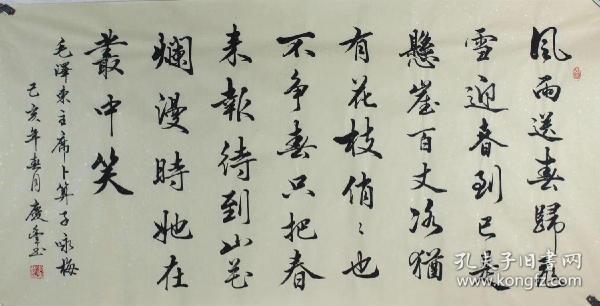 風雨送春歸飛
雪迎春到已是
懸崖百丈冰猶
有花枝俏〻也
不争春只把春
来報待到山花
爛漫時她在
叢中笑
毛澤東主席卜算子咏梅
己亥年春月慶
孔夫子旧书网